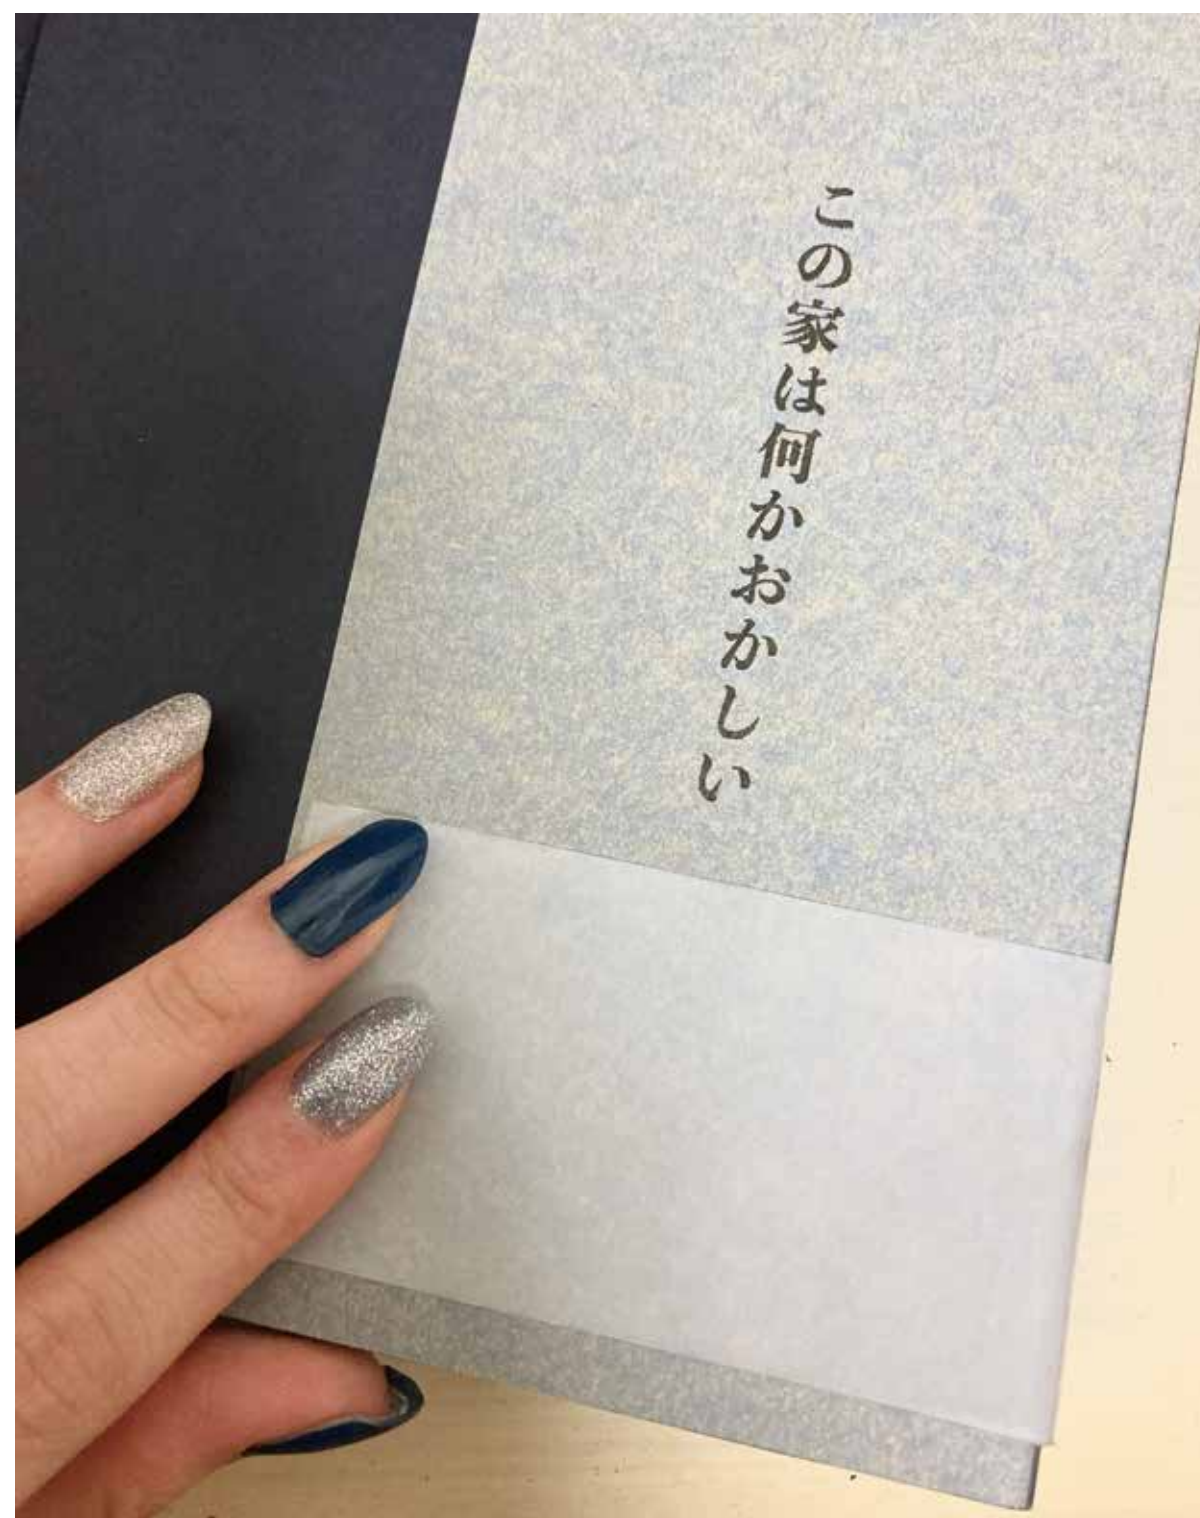 この家は何かおかしい